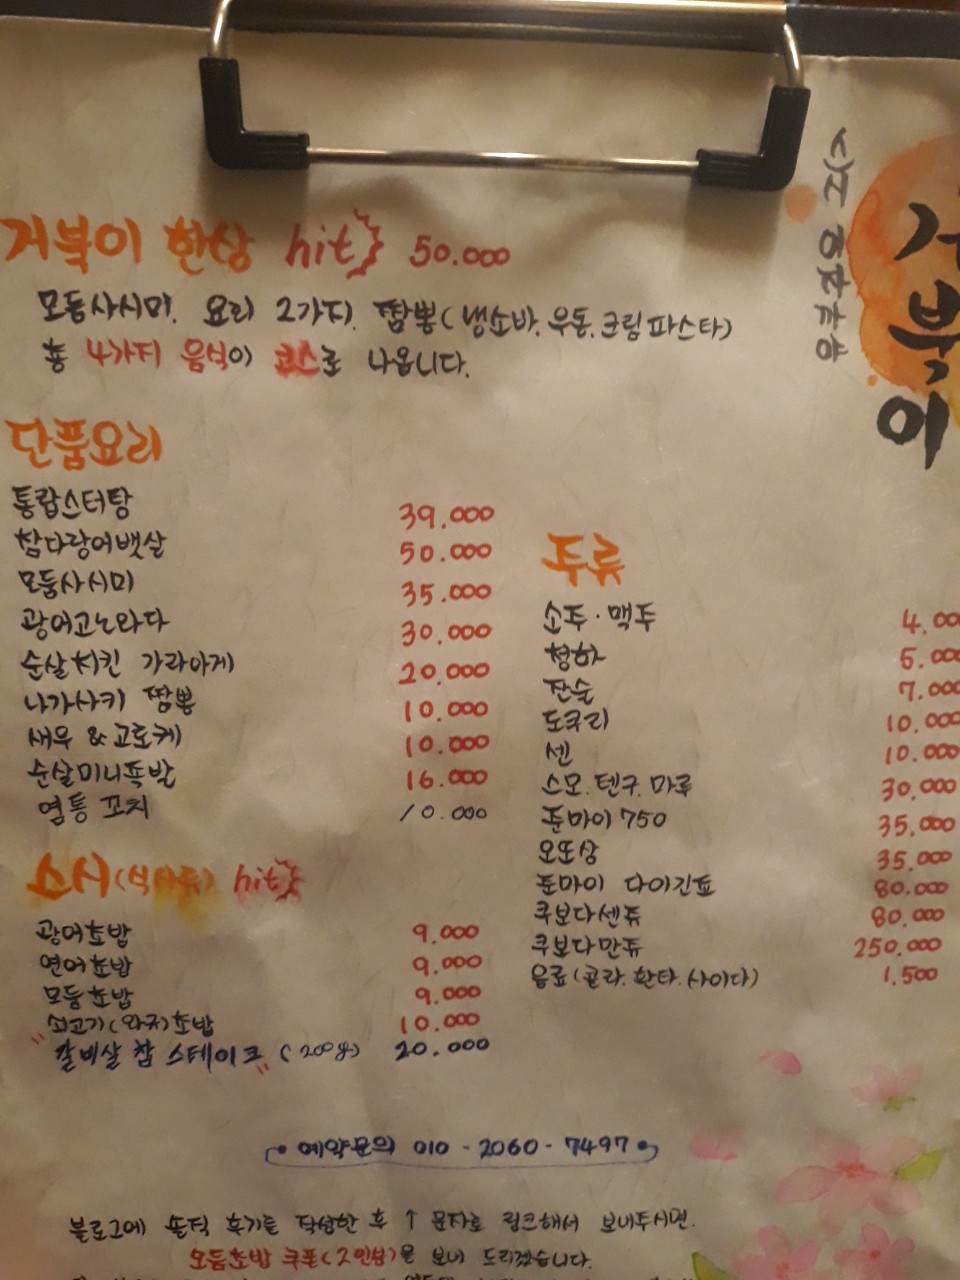 거북이 한상 hit 50.000
모둠사시미. 요리 2가지. 짬뽕(냉소바.우동.크림파스타)
총 4가지 음식이 코스로 나옵니다.
단품요리
통랍스터탕 39.000
참다랑어뱃살 50.000
모둠사시미 35.000
광어고노와다 30.000
순살치킨 가라아게 20.000
나가사키 짬뽕 10.000
새우 & 고로케 10.000
순살미니족발 16.000
염통 꼬치 10.000
스시(식사류) hit
광어초밥 9.000
연어초밥 9.000
모둠초밥 9.000
쇠고기(와규)초밥 10.000
"갈비살 찹 스테이크" (200g) 20.000
주류
소주·맥주 4.00
청하 5.000
잔술 7.000
도쿠리 10.000
센 10.000
스모.텐구.마루 30.000
준마이 750 35.000
오또상 35.000
준마이 다이긴죠 80.000
쿠보다센쥬 80.000
쿠보다만쥬 250.000
음료(콜라.환타.사이다) 1.500
거북이
예약문의 010-2060-7497
블로그에 솔직 후기를 작성한 후 ↑ 문자로 링크해서 보내주시면.
모듬초밥 쿠폰(2인분)을 보내 드리겠습니다.